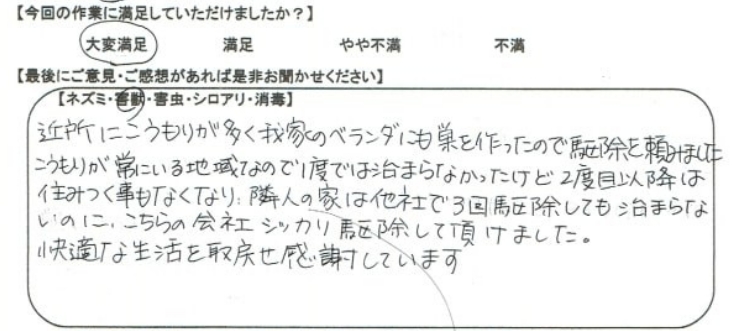 【今回の作業に満足していただけましたか？】
大変満足 満足 やや不満 不満
【最後にご意見・ご感想があれば是非お聞かせください】
【ネズミ・害獣・害虫・シロアリ・消毒】
近所にこうもりが多く我家のベランダにも巣を作ったので駆除を頼みました
こうもりが常にいる地域なので1度では治まらなかったけど2度目以降は
住みつく事もなくなり、隣人の家は他社で3回駆除しても治まらな
いのに、こちらの会社シッカリ駆除して頂けました。
快適な生活を取戻せ感謝しています